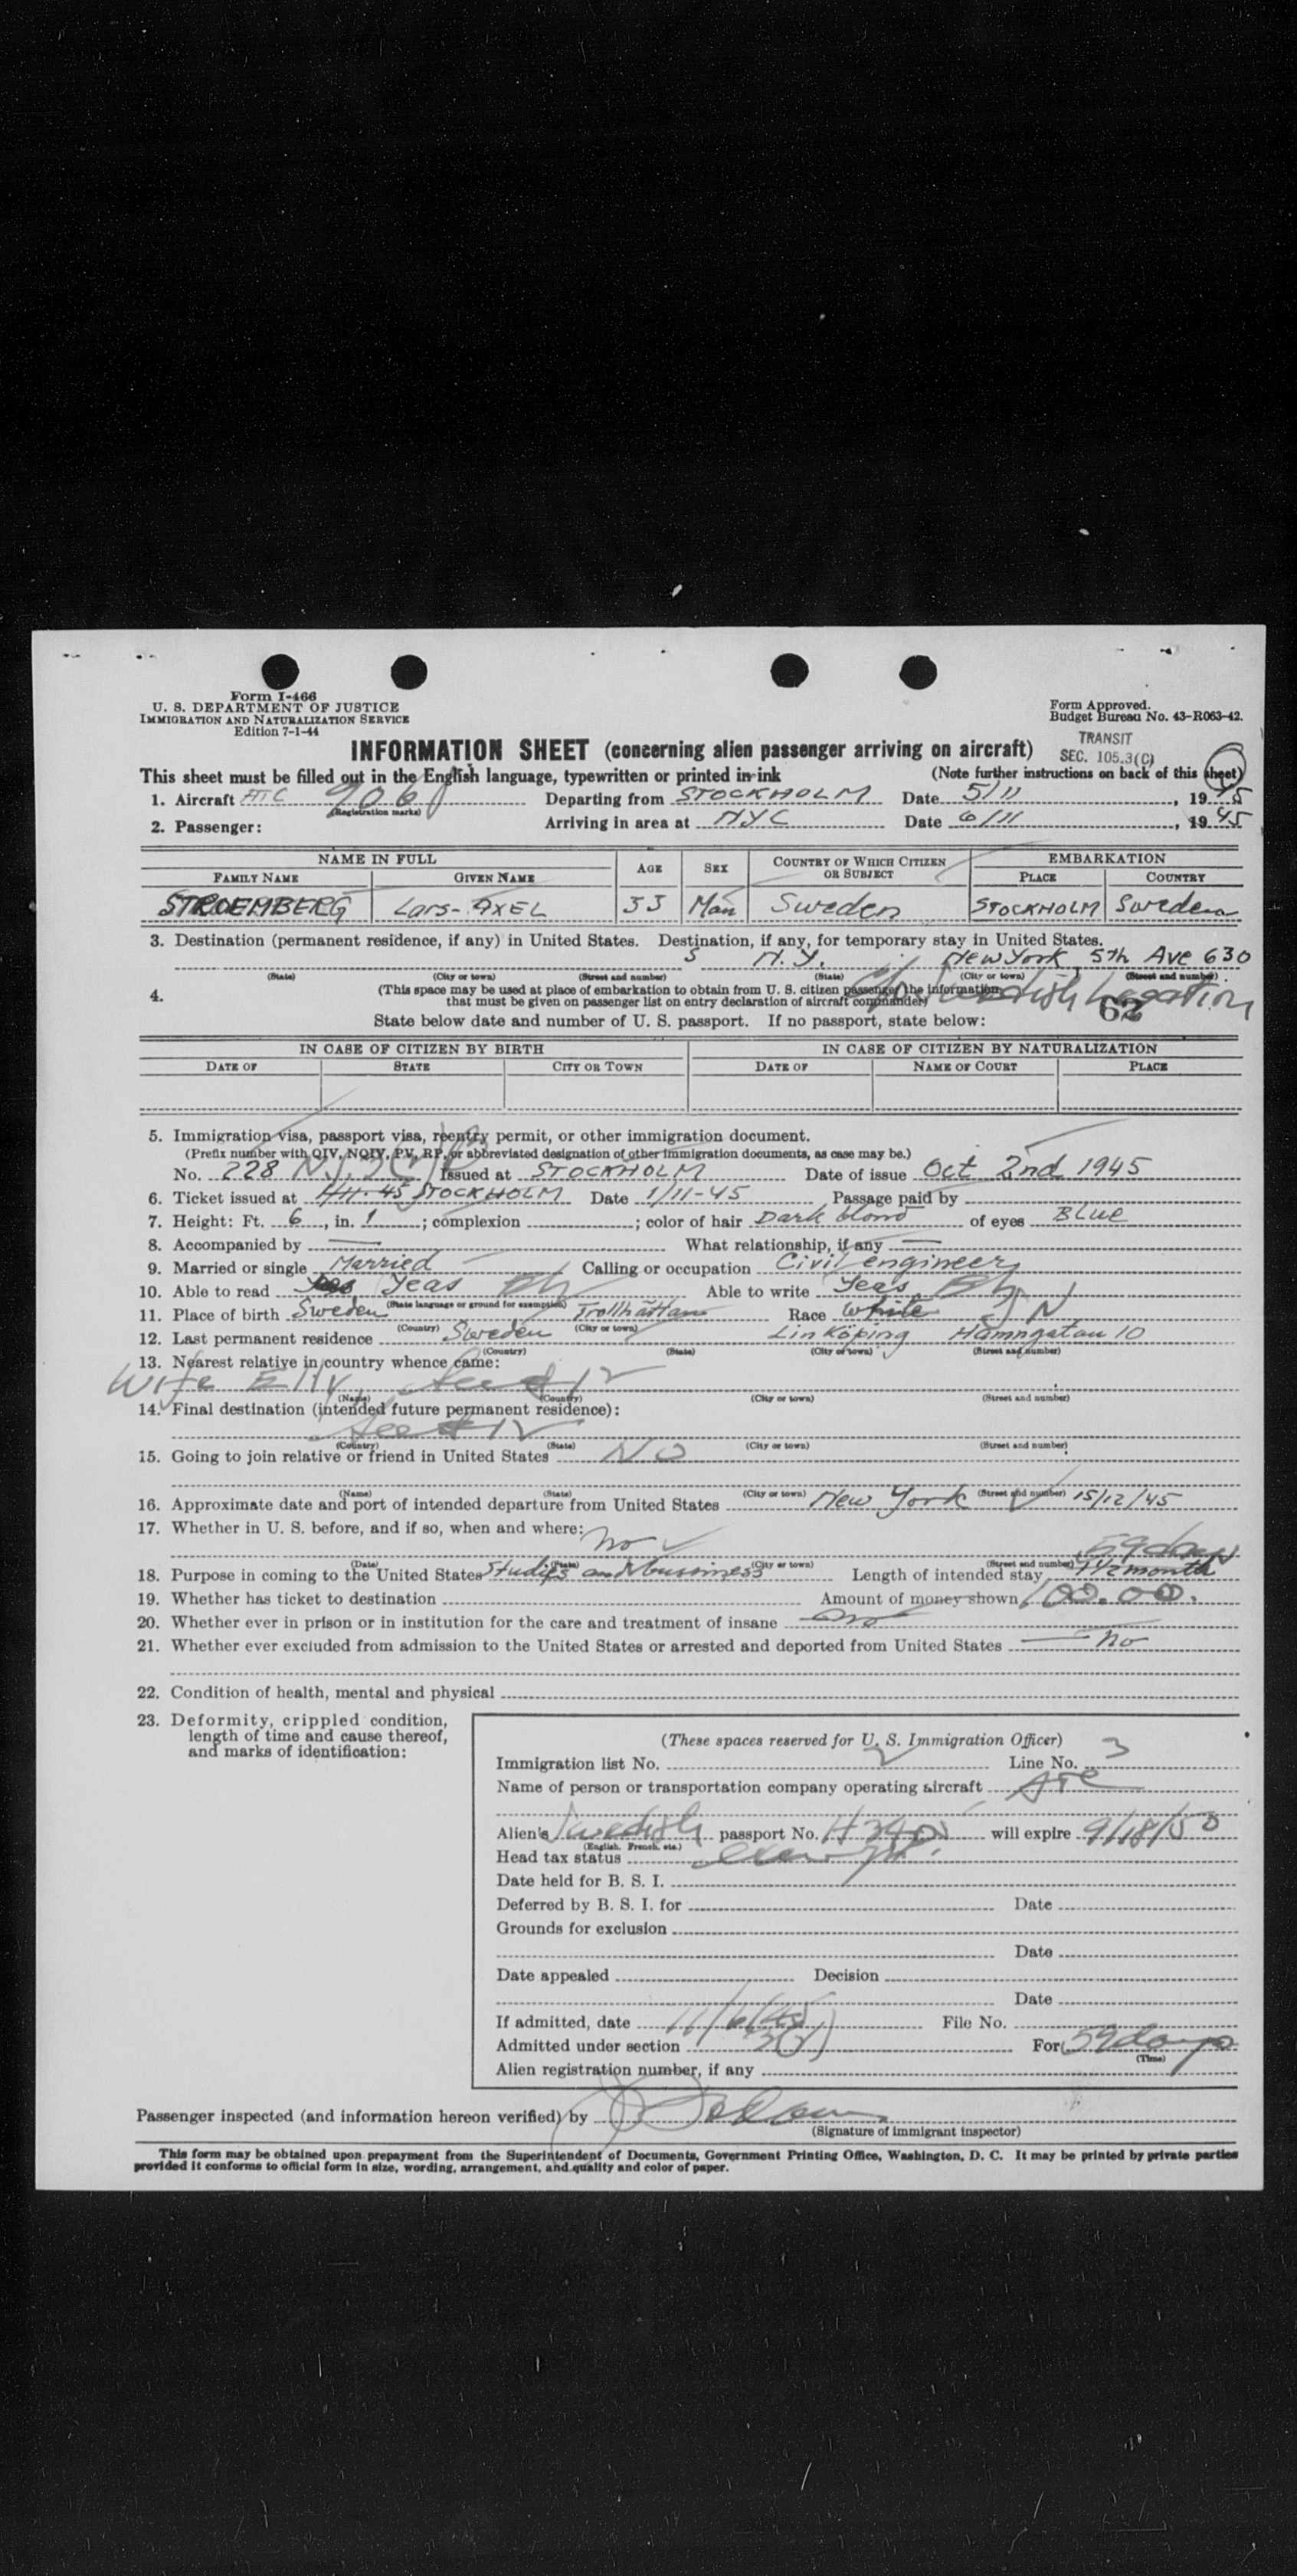 Form I-466
U. S. DEPARTMENT OF JUSTICE
IMMIGRATION AND NATURALIZATION SERVICE
Edition 7-1-44
Form Approved.
Budget Bureau No. 43-R063-42.
TRANSIT
SEC. 105.3(C)
INFORMATION SHEET (concerning alien passenger arriving on aircraft)
This sheet must be filled out in the English language, typewritten or printed in ink (Note further instructions on back of this sheet)
1. Aircraft ATC 906 Departing from STOCKHOLM Date 5/11, 1945
(Registration marks)
2. Passenger: Arriving in area at NYC Date 6/11, 1945
NAME IN FULL AGE SEX COUNTRY OF WHICH CITIZEN OR SUBJECT EMBARKATION
FAMILY NAME GIVEN NAME PLACE COUNTRY
STROEMBERG Lars-AXEL 33 Man Sweden STOCKHOLM Sweden
3. Destination (permanent residence, if any) in United States. Destination, if any, for temporary stay in United States.
N.Y. New York 5th Ave 630
(State) (City or town) (Street and number) (State) (City or town) (Street and number)
4. (This space may be used at place of embarkation to obtain from U. S. citizen passenger the information
that must be given on passenger list on entry declaration of aircraft commander)
Swedish Legation
62
State below date and number of U. S. passport. If no passport, state below:
IN CASE OF CITIZEN BY BIRTH IN CASE OF CITIZEN BY NATURALIZATION
DATE OF STATE CITY OR TOWN DATE OF NAME OF COURT PLACE
5. Immigration visa, passport visa, reentry permit, or other immigration document.
(Prefix number with QIV, NQIV, PV, RP, or abbreviated designation of other immigration documents, as case may be.)
No. 228 Issued at STOCKHOLM Date of issue Oct 2nd 1945
6. Ticket issued at STOCKHOLM Date 1/11-45 Passage paid by
7. Height: Ft. 6, in. 1; complexion ; color of hair Dark blond of eyes Blue
8. Accompanied by — What relationship, if any —
9. Married or single Married Calling or occupation Civil engineer
10. Able to read Yeas Able to write Yeas
(State language or ground for exemption)
11. Place of birth Sweden Trollhättan Race White
(Country) (City or town)
12. Last permanent residence Sweden Linköping Hamngatan 10
(Country) (State) (City or town) (Street and number)
13. Nearest relative in country whence came:
Wife Elly See # 12
(Name) (Country) (City or town) (Street and number)
14. Final destination (intended future permanent residence):
See # 12
(Country) (State) (City or town) (Street and number)
15. Going to join relative or friend in United States NO
(Name) (State) (City or town) (Street and number)
16. Approximate date and port of intended departure from United States New York 15/12/45
17. Whether in U. S. before, and if so, when and where: no
(Date) (State) (City or town) (Street and number)
59 days
18. Purpose in coming to the United States Studies and bussiness Length of intended stay 1 1/2 month
19. Whether has ticket to destination Amount of money shown 100.00.
20. Whether ever in prison or in institution for the care and treatment of insane no
21. Whether ever excluded from admission to the United States or arrested and deported from United States no
22. Condition of health, mental and physical
23. Deformity, crippled condition,
length of time and cause thereof,
and marks of identification:
(These spaces reserved for U. S. Immigration Officer)
Immigration list No. 2 Line No. 3
Name of person or transportation company operating aircraft ATC
Alien's Swedish passport No. will expire 9/18/50
(English, French, etc.)
Head tax status exempt
Date held for B. S. I.
Deferred by B. S. I. for Date
Grounds for exclusion
Date
Date appealed Decision
Date
If admitted, date 11/6/45 File No.
Admitted under section For 59 days
(Time)
Alien registration number, if any
Passenger inspected (and information hereon verified) by
(Signature of immigrant inspector)
This form may be obtained upon prepayment from the Superintendent of Documents, Government Printing Office, Washington, D. C. It may be printed by private parties
provided it conforms to official form in size, wording, arrangement, and quality and color of paper.